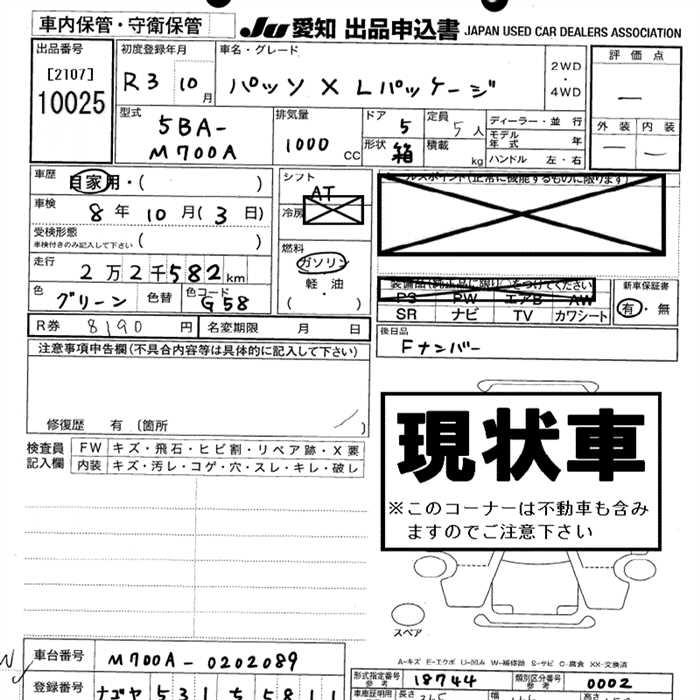 車内保管・守衛保管
JU 愛知 出品申込書 JAPAN USED CAR DEALERS ASSOCIATION
出品番号
[2107]
10025
初度登録年月
R3 10月
車名・グレード
パッソ X Lパッケージ
2WD・4WD
評価点
—
外装 内装
— —
型式
5BA-
M700A
排気量
1000 CC
ドア 5
形状 箱
定員 5人
積載 kg
ディーラー・並行
モデル年式 年
ハンドル 左・右
車歴
自家用・( )
車検
8年10月(3日)
受検形態
車検付きのみ記入して下さい ( )
走行
2万2千582km
色
グリーン
色替
色コード
G58
シフト
AT
冷房
燃料
ガソリン
軽・油
( ・ )
セールスポイント(正常に機能するものに限ります)
PS PW エアB AW
SR ナビ TV カワシート
新車保証書
有・無
R券 8190円
名変期限 月 日
後日品
Fナンバー
注意事項申告欄(不具合内容等は具体的に記入して下さい)
修復歴 有〔箇所
検査員記入欄
FW キズ・飛石・ヒビ割・リペア跡・X要
内装 キズ・汚レ・コゲ・穴・スレ・キレ・破レ
現状車
※このコーナーは不動車も含み
ますのでご注意下さい
スペア
A-キズ E-エクボ U-凹み W-補修跡 S-サビ C-腐食 XX-交換済
車台番号
M700A-0202089
型式指定番号
参考
18744
類別区分番号
参考
0002
登録番号
ナゴヤ 531
車庫証明用
長さ